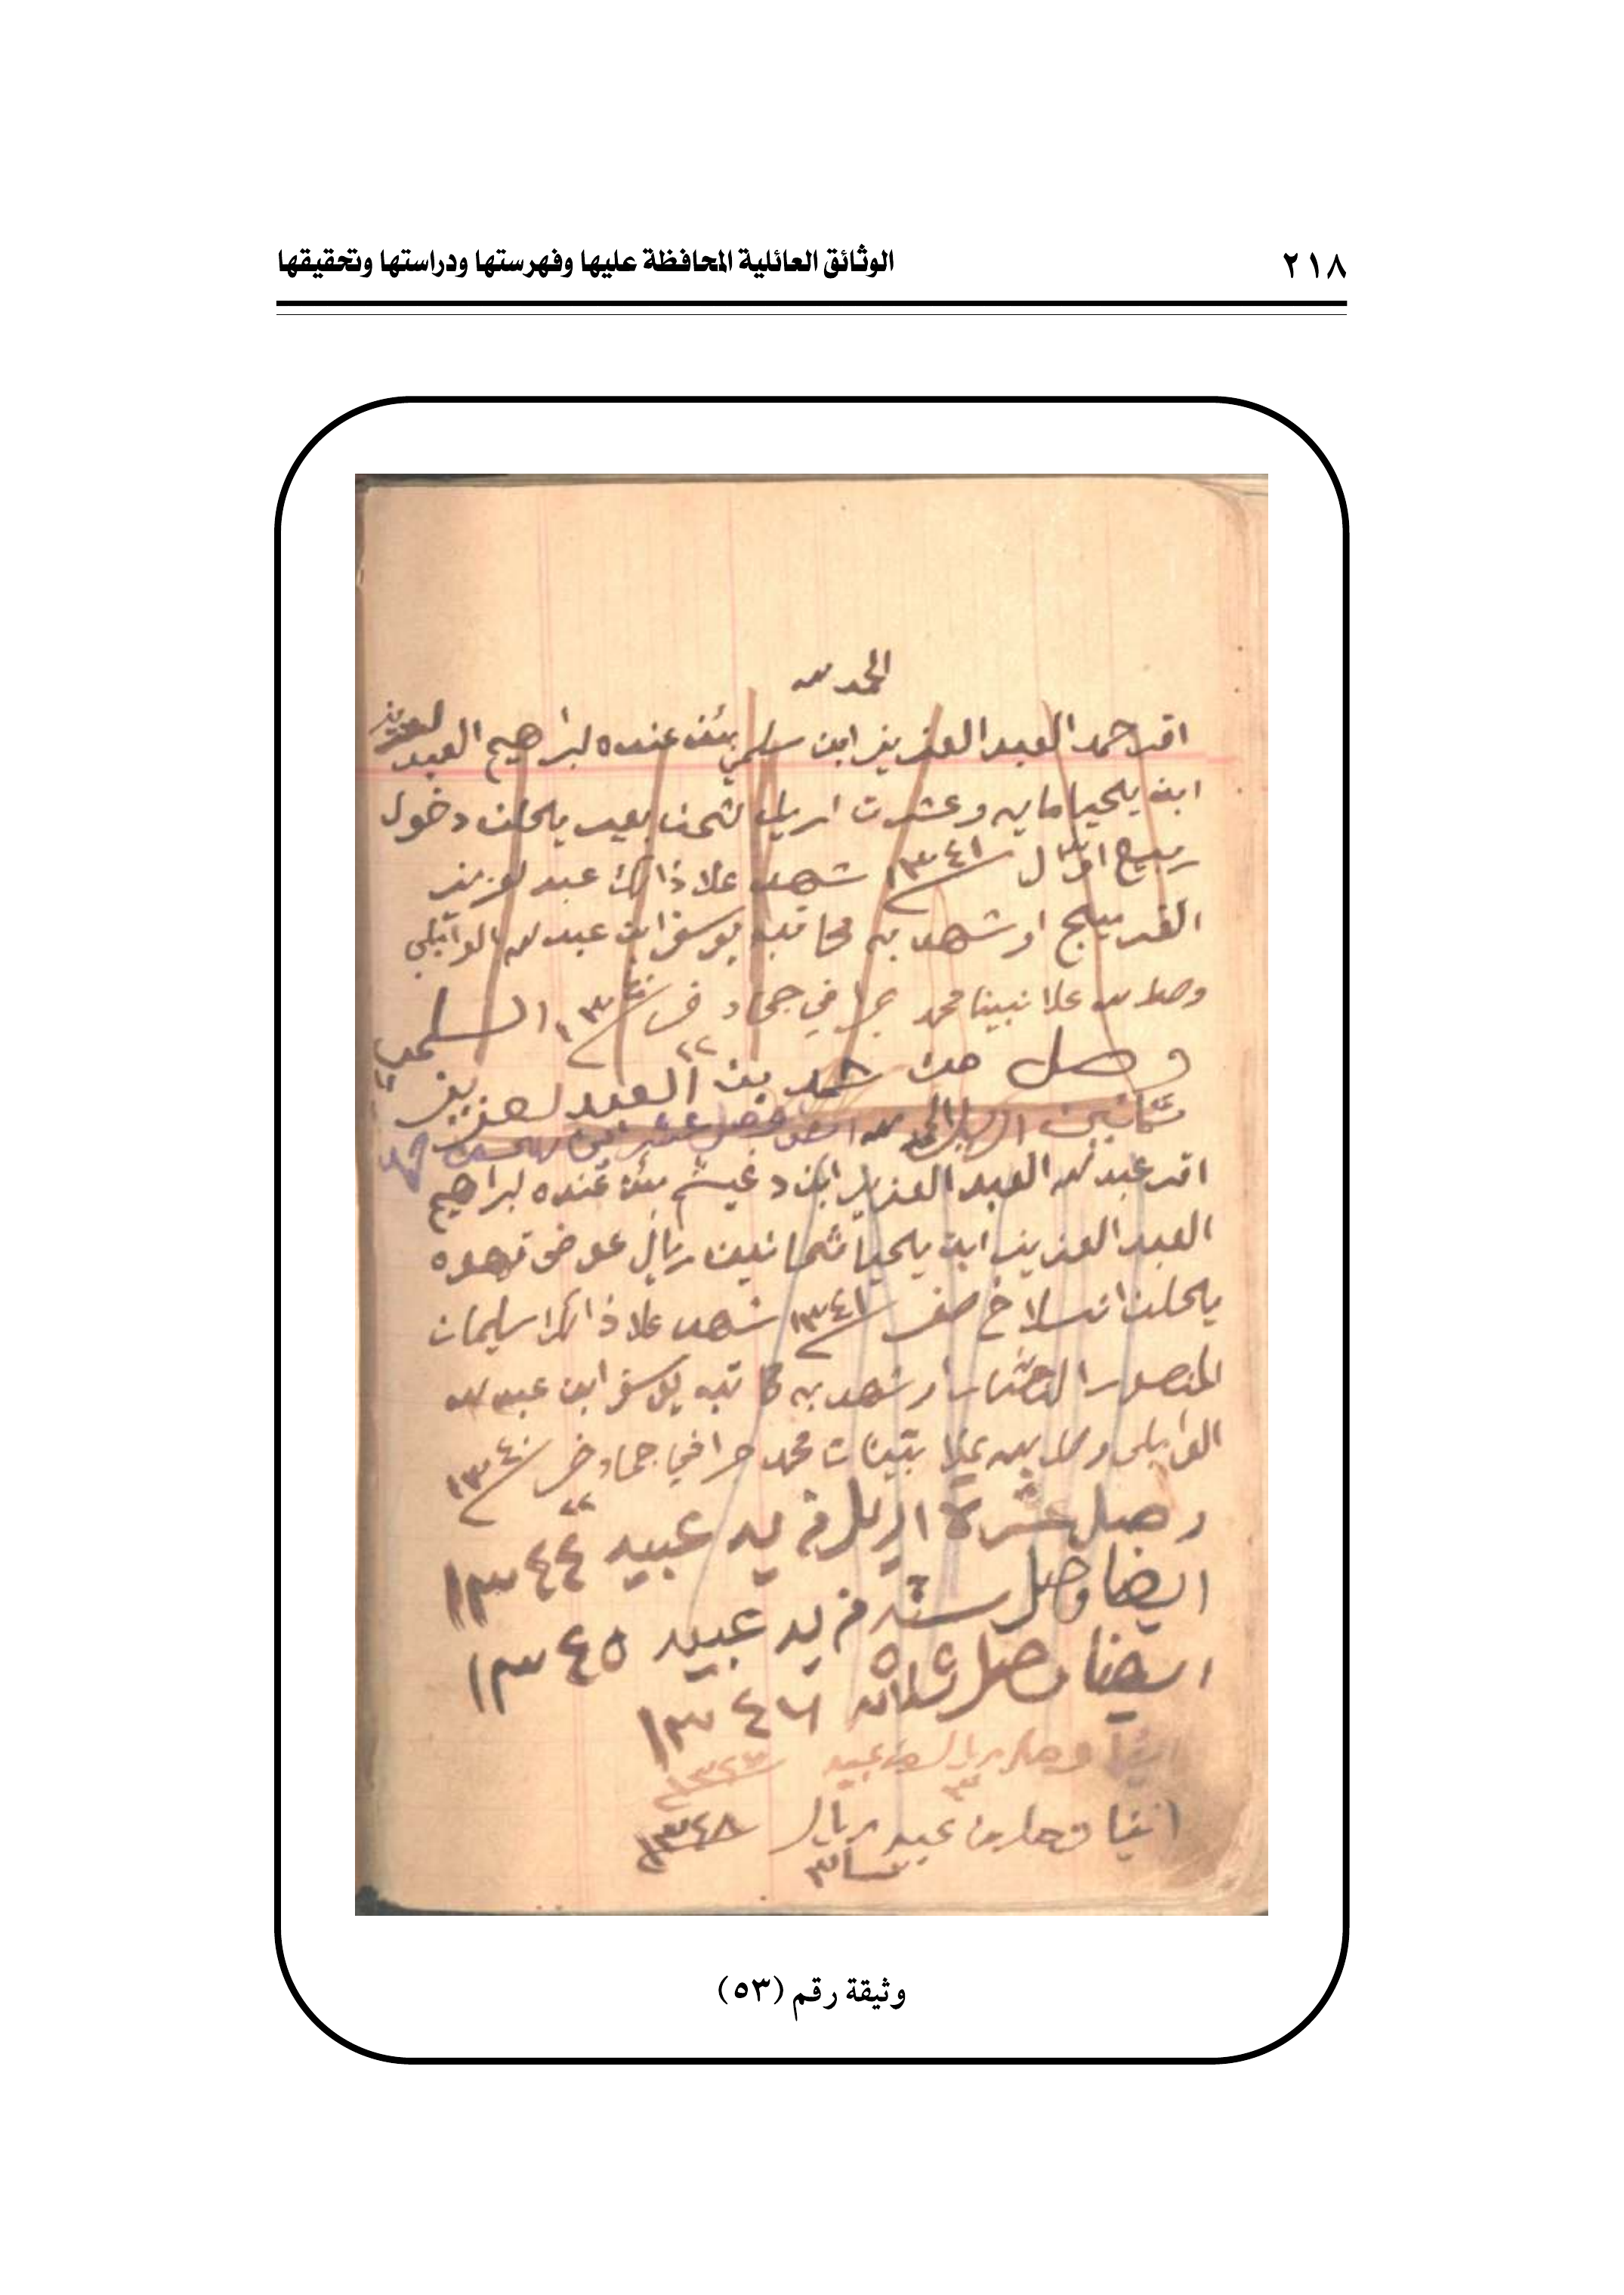 ٢١٨
الوثائق العائلية المحافظة عليها وفهرستها ودراستها وتحقيقها
الحمد لله
اقر حمد العبد العزيز ابن سلمي بئن عنده لبراهيم العبد لعزيز
ابن يحيا مايه وعشرت اريل ثمن بعير يحلن دخول
ربيع اول ١٣٤١ شهد علا ذالك عبد لعزيز
القرميع او شهد به كاتبه يوسف ابن عبد لله الوايلي
وصلا لله علا نبينا محمد جرا في جماد ١٣٤٠ السلمي
٢٢
وصل من حمد بن العبد لعزيز
ثمانين اريل الحمد لله ايضا وصل عشر
اقر عبد لله العبد العزيز ابن دغيثم بئن عنده لبراهيم
العبد العزيز ابن يحيا ثمانين ريال عوض قهوه
يحلن انسلاخ صفر ١٣٤١ شهد علا ذالك سليمان
المنصور او شهد به كاتبه يوسف ابن عبد لله
الوايلي وصلا لله علا محمد جرا في جماد خر ١٣٤٠
٢٢
وصل عشرة اريل من يد عبيد ١٣٤٤
ايضا وصل سته من يد عبيد ١٣٤٥
ايضا وصل ثلاثه ١٣٤٦
ايضا وصل ريال من عبيد
٣
ايضا وصل من عبيد ريال ١٣٤٨
٣
وثيقة رقم (٥٣)